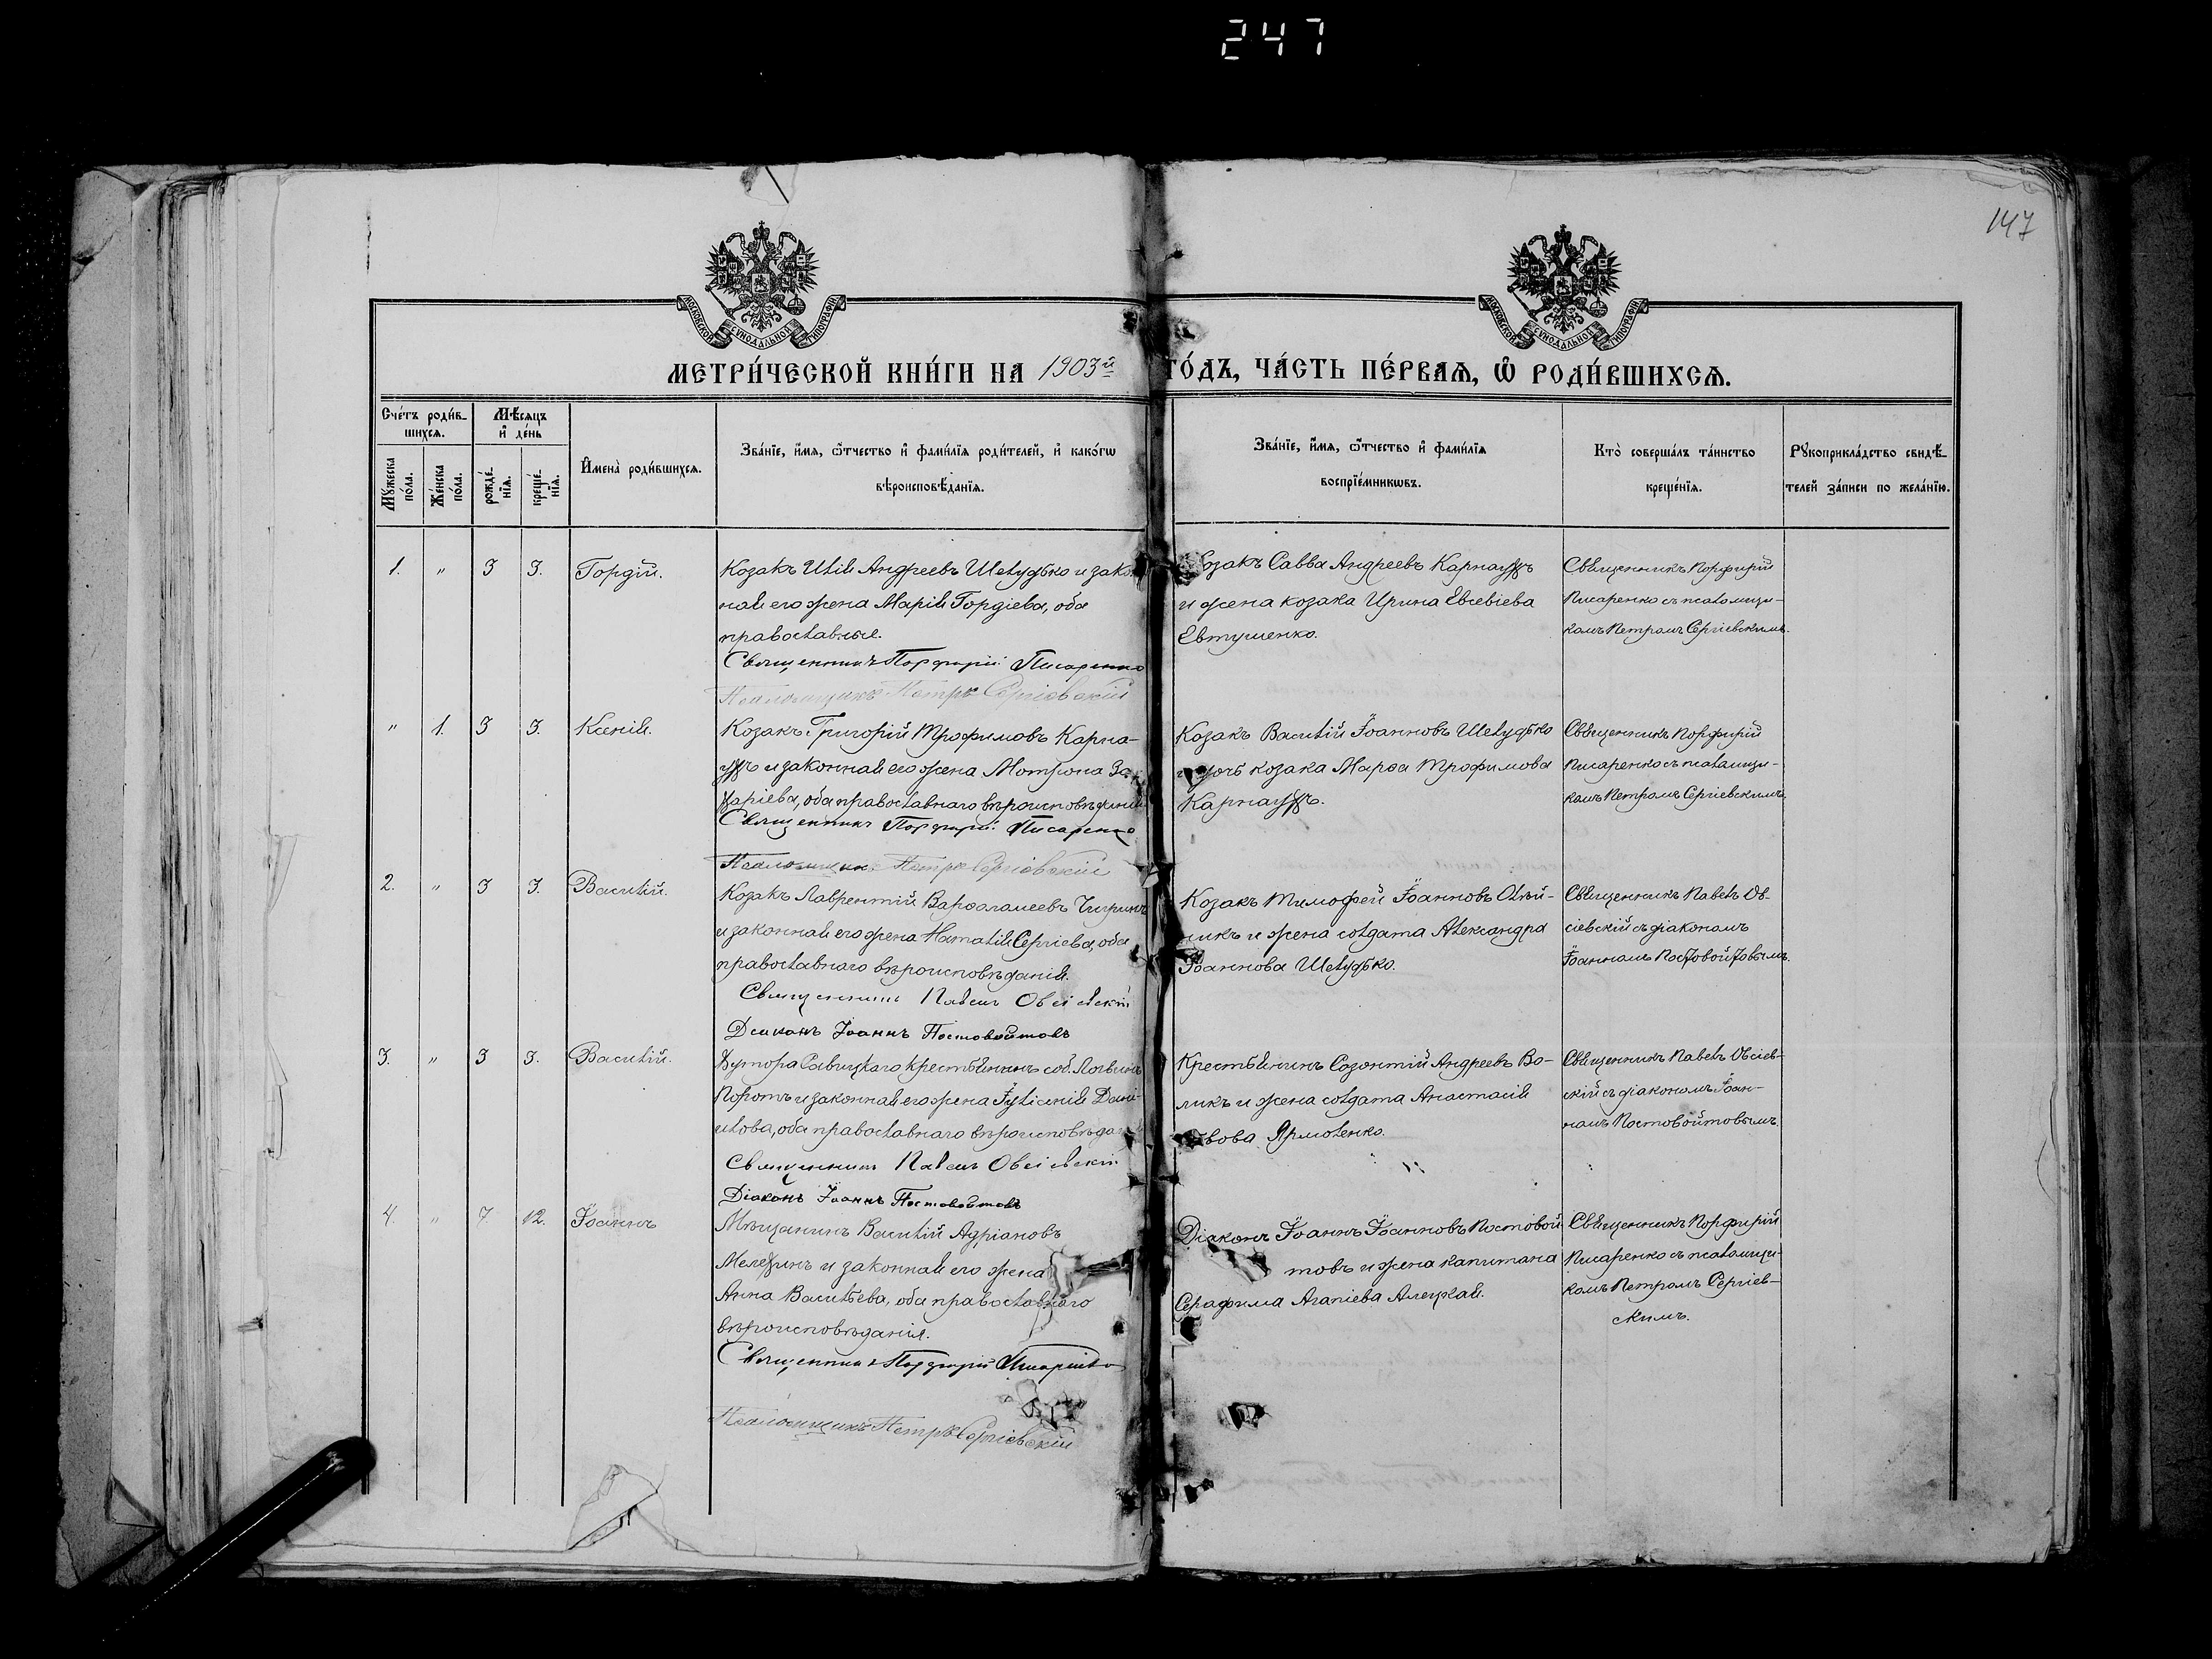 247
147
МОСКОВСКОЙ СѴНОДАЛЬНОЙ ТИПОГРАФІИ
МОСКОВСКОЙ СѴНОДАЛЬНОЙ ТИПОГРАФІИ
МЕТРИ́ЧЕСКОЙ КНИ́ГИ НА 1903й ГО́ДЪ, ЧА́СТЬ ПЕ́РВАѦ, Ѡ҆ РОДИ́ВШИХСѦ.
Сче́тъ роди́в-
шихсѧ.
Мѣ́сѧцъ
и҆ де́нь
Мꙋ́жеска по́ла.
Же́нска по́ла.
рожде́-
нїѧ.
креще́-
нїѧ.
И҆мена̀ роди́вшихсѧ.
Зва́нїе, и҆́мѧ, ѻ҆́тчество и҆ фами́лїѧ роди́телей, и҆ како́гѡ
вѣроисповѣ́данїѧ.
Зва́нїе, и҆́мѧ, ѻ҆́тчество и҆ фами́лїѧ
воспрїе́мникѡвъ.
Кто̀ соверша́лъ та́инство
креще́нїѧ.
Рꙋкоприкла́дство свидѣ́-
телей за́писи по жела́нїю.
1. " 3 3. Гордій.
Козакъ Илія Андреевъ Шелудько и закон
ная его жена Марія Гордіева, оба
православные.
Священникъ Порфирій Писаренко
Псаломщикъ Петръ Сергіевскій
Козакъ Савва Андреевъ Карнаухъ
и жена козака Ирина Евсевіева
Евтушенко.
Священникъ Порфирій
Писаренко съ псаломщи-
комъ Петромъ Сергіевскимъ.
" 1. 3 3. Ксенія.
Козакъ Григорій Трофимовъ Карна-
ухъ и законная его жена Мотрона За-
харіева, оба православнаго вѣроисповѣданія
Священникъ Порфирій Писаренко
Псаломщикъ Петръ Сергіевскій
Козакъ Василій Іоанновъ Шелудько
и дочь козака Марѳа Трофимова
Карнаухъ.
Священникъ Порфирій
Писаренко съ псаломщи-
комъ Петромъ Сергіевскимъ.
2. " 3 3. Василій.
Козакъ Лаврентій Варѳоломеевъ Чигринъ
и законная его жена Наталія Сергіева, оба
православнаго вѣроисповѣданія.
Священникъ Павелъ Овсіевскій
Діаконъ Іоаннъ Постовойтовъ
Козакъ Тимофей Іоанновъ Олѣй-
никъ и жена солдата Александра
Іоаннова Шелудько.
Священникъ Павелъ Ов-
сіевскій съ діакономъ
Іоанномъ Постовойтовымъ.
3. " 3 3. Василій.
Хутора Савицкаго крестьянинъ соб.
и законная его жена Гуліанія Дані-
илова, оба православнаго вѣроисповѣданія
Священникъ Павелъ Овсіевскій
Діаконъ Іоаннъ Постовойтовъ
Крестьянинъ Созонтій Андреевъ Во-
ликъ и жена солдата Анастасія
Львова Ярмоленко.
Священникъ Павелъ Овсіев-
скій съ діакономъ Іоан-
номъ Постовойтовымъ.
4. " 7. 12. Іоаннъ
Мѣщанинъ Василій Адріановъ
Мелехинъ и законная его жена
Анна Васильева, оба православнаго
вѣроисповѣданія.
Священникъ Порфирій Писаренко
Псаломщикъ Петръ Сергіевскій
Діаконъ Іоаннъ Іоанновъ Постовой
товъ и жена капитана
Серафима Агапіева
Священникъ Порфирій
Писаренко съ псаломщи-
комъ Петромъ Сергіев-
скимъ.